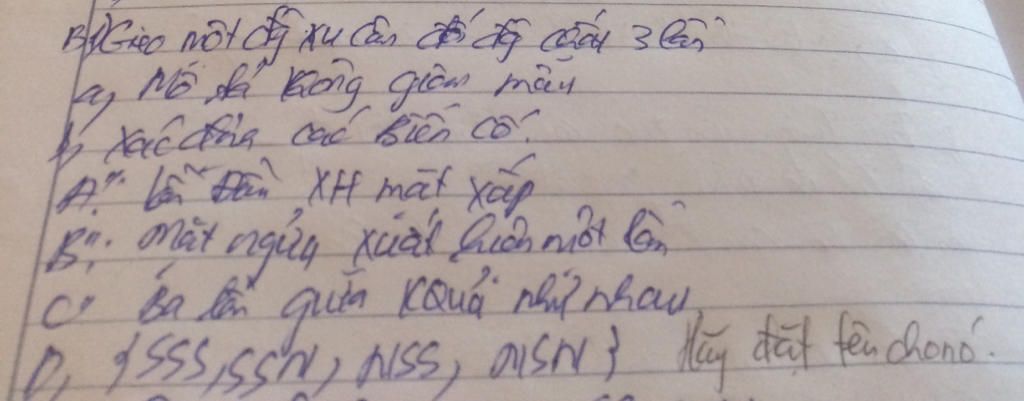 B1, Gieo một đồng xu cân đối đồng chất 3 lần
a, Mô tả không gian mẫu
b, Xác định các biến cố.
A": lần đầu XH mặt xấp
B": Mặt ngửa xuất hiện một lần
C" Ba lần gieo KQuả như nhau
D, {SSS, SSN, NSS, NSN} Hãy đặt tên cho nó.